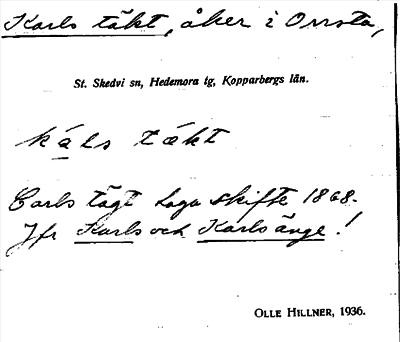 Karls täkt, åker i Orrsta,
St. Skedvi sn, Hedemora tg, Kopparbergs län.
káls täkt
Carls tägt Laga skifte 1868.
Jfr Karls och Karlsänge!
OLLE HILLNER, 1936.